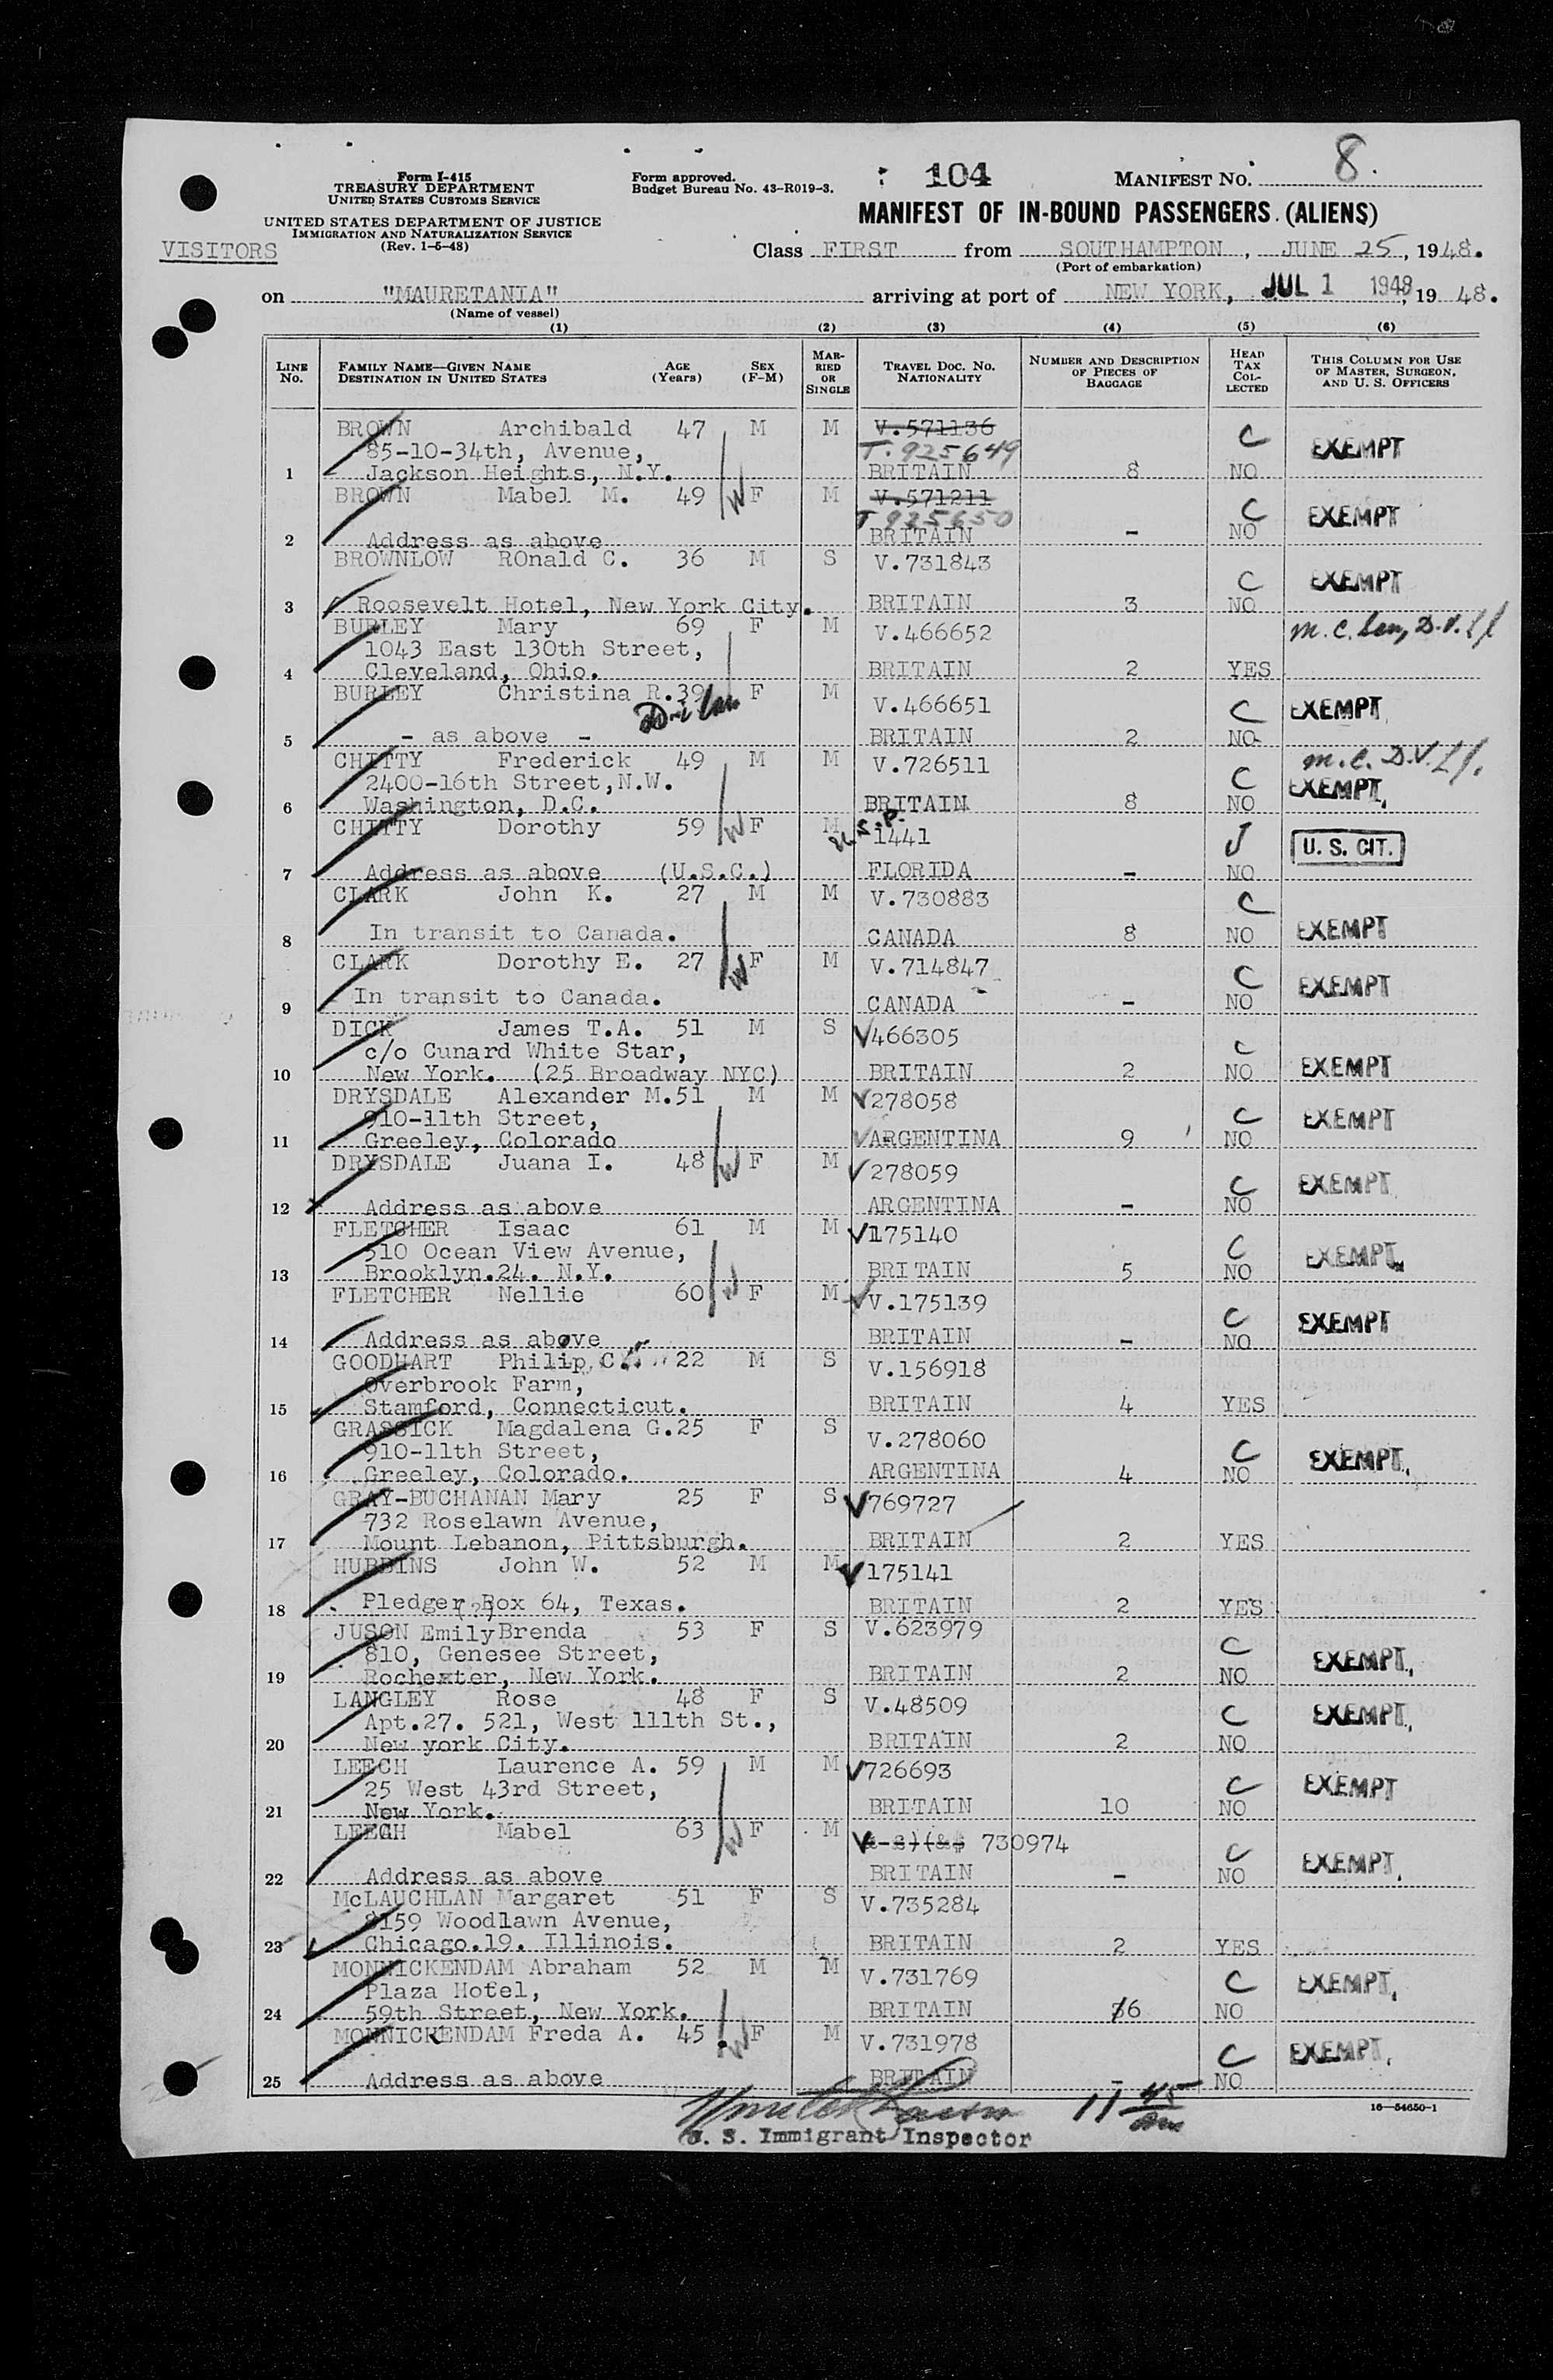 8.
Form I-415
TREASURY DEPARTMENT
UNITED STATES CUSTOMS SERVICE
Form approved.
Budget Bureau No. 43-R019-3.
104
MANIFEST No.
UNITED STATES DEPARTMENT OF JUSTICE
IMMIGRATION AND NATURALIZATION SERVICE
(Rev. 1-5-48)
MANIFEST OF IN-BOUND PASSENGERS (ALIENS)
VISITORS
Class FIRST from SOUTHAMPTON, JUNE 25, 1948.
(Port of embarkation)
on "MAURETANIA" arriving at port of NEW YORK, JUL 1 1948, 19 48.
(Name of vessel)
(1) (2) (3) (4) (5) (6)
LINE No. FAMILY NAME—GIVEN NAME DESTINATION IN UNITED STATES AGE (Years) SEX (F-M) MARRIED OR SINGLE TRAVEL DOC. NO. NATIONALITY NUMBER AND DESCRIPTION OF PIECES OF BAGGAGE HEAD TAX COLLECTED THIS COLUMN FOR USE OF MASTER, SURGEON, AND U. S. OFFICERS
BROWN Archibald 47 M M V.571136 C
85-10-34th, Avenue, T.925649 EXEMPT
1 Jackson Heights, N.Y. BRITAIN 8 NO
BROWN Mabel M. 49 W F M V.571211 C
T 925650 EXEMPT
2 Address as above BRITAIN - NO
BROWNLOW ROnald C. 36 M S V.731843 C EXEMPT
3 Roosevelt Hotel, New York City. BRITAIN 3 NO
BURLEY Mary 69 F M V.466652 m.c. D.V.
1043 East 130th Street,
4 Cleveland, Ohio. BRITAIN 2 YES
BURLEY Christina R. 39 F M V.466651 C EXEMPT
5 - as above - BRITAIN 2 NO
CHITTY Frederick 49 M M V.726511 m.c. D.V.
2400-16th Street, N.W. C EXEMPT
6 Washington, D.C. BRITAIN 8 NO
CHITTY Dorothy 59 W F M U.S.P. 1441 U. S. CIT.
7 Address as above (U.S.C.) FLORIDA - NO
CLARK John K. 27 M M V.730883 C
8 In transit to Canada. CANADA 8 NO EXEMPT
CLARK Dorothy E. 27 W F M V.714847 C EXEMPT
9 In transit to Canada. CANADA - NO
DICK James T.A. 51 M S V466305
c/o Cunard White Star, C
10 New York. (25 Broadway NYC) BRITAIN 2 NO EXEMPT
DRYSDALE Alexander M. 51 M M V278058
910-11th Street, C EXEMPT
11 Greeley, Colorado ARGENTINA 9 NO
DRYSDALE Juana I. 48 W F M V278059 C EXEMPT
12 Address as above ARGENTINA - NO
FLETCHER Isaac 61 M M V175140
510 Ocean View Avenue, C EXEMPT
13 Brooklyn.24. N.Y. BRITAIN 5 NO
FLETCHER Nellie 60 W F M V.175139 C EXEMPT
14 Address as above BRITAIN - NO
GOODHART Philip C 22 M S V.156918
Overbrook Farm,
15 Stamford, Connecticut. BRITAIN 4 YES
GRASSICK Magdalena G. 25 F S V.278060
910-11th Street, C EXEMPT
16 Greeley, Colorado. ARGENTINA 4 NO
GRAY-BUCHANAN Mary 25 F S V769727
732 Roselawn Avenue,
17 Mount Lebanon, Pittsburgh. BRITAIN 2 YES
HUBBINS John W. 52 M M V175141
18 Pledger Box 64, Texas. BRITAIN 2 YES
(?)
JUSON Emily Brenda 53 F S V.623979
810, Genesee Street, C EXEMPT
19 Rochexter, New York. BRITAIN 2 NO
LANGLEY Rose 48 F S V.48509
Apt.27. 521, West 111th St., C EXEMPT
20 New york City. BRITAIN 2 NO
LEECH Laurence A. 59 M M V726693
25 West 43rd Street, C EXEMPT
21 New York. BRITAIN 10 NO
LEECH Mabel 63 W F M 730974 C EXEMPT
22 Address as above BRITAIN - NO
McLAUCHLAN Margaret 51 F S V.735284
8159 Woodlawn Avenue,
23 Chicago.19. Illinois. BRITAIN 2 YES
MONNICKENDAM Abraham 52 M M V.731769
Plaza Hotel, C EXEMPT
24 59th Street, New York. BRITAIN 36 NO
MONNICKENDAM Freda A. 45 W F M V.731978 C EXEMPT
25 Address as above BRITAIN - NO
11 45 am
U. S. Immigrant Inspector
16—54650-1